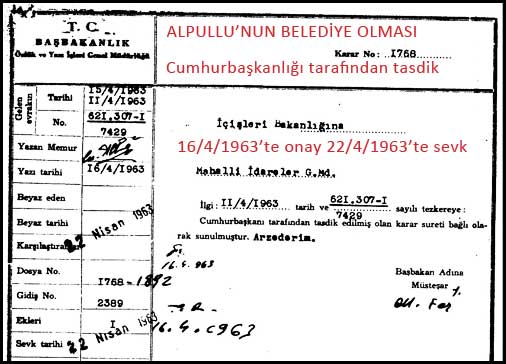 T. C.
BAŞBAKANLIK
Özlük ve Yazı İşleri Genel Müdürlüğü
ALPULLU’NUN BELEDİYE OLMASI
Karar No: 1768
Cumhurbaşkanlığı tarafından tasdik
Gelen evrakın
Tarihi
15/4/1963
11/4/1963
No.
621.307-I
7429
Yazan Memur
Yazı tarihi
16/4/1963
Beyaz eden
Beyaz tarihi
Karşılaştıran
22 Nisan 1963
Dosya No.
1768-1892
Gidiş No.
2389
Ekleri
I
Sevk tarihi
22 Nisan 1963
İçişleri Bakanlığına
16/4/1963’te onay 22/4/1963’te sevk
Mahalli İdareler G.Md.
İlgi: 11/4/1963 tarih ve 621.307-I/7429 sayılı tezkereye:
Cumhurbaşkanı tarafından tasdik edilmiş olan karar sureti bağlı ola-
rak sunulmuştur. Arzederim.
16.4.963
Başbakan Adına
Müsteşar
16.4.1963